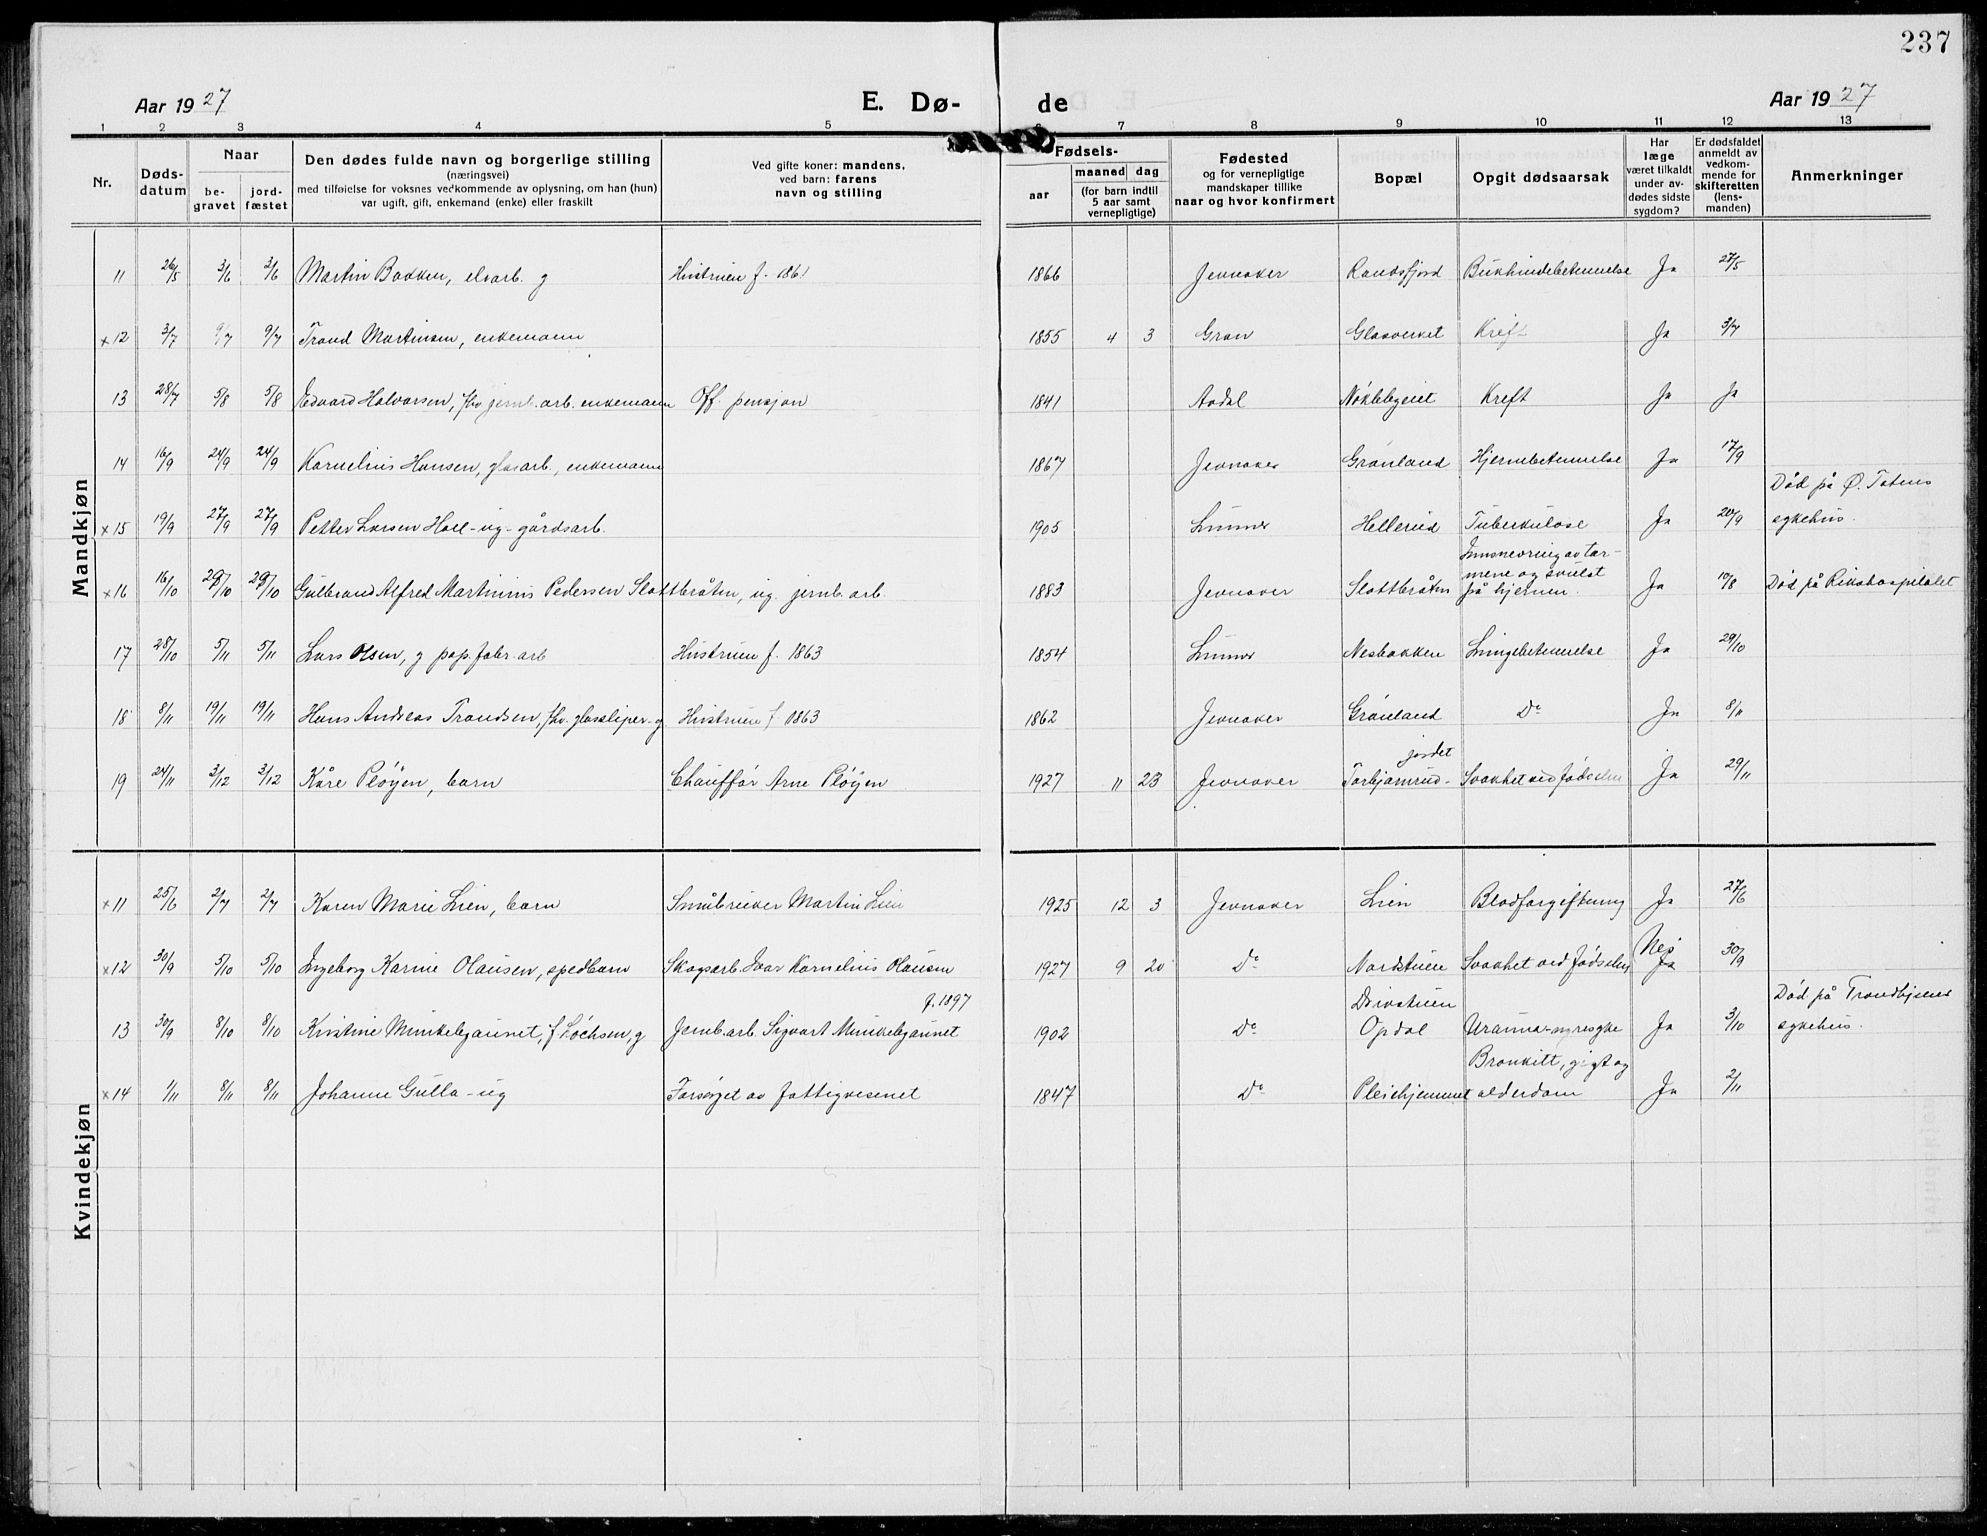 237
Aar 1927 E. Dø- de Aar 1927
1 2 3 4 5 6 7 8 9 10 11 12 13
Nr.
Døds-
datum
Naar
be-
gravet
jord-
fæstet
Den dødes fulde navn og borgerlige stilling
(næringsvei)
med tilføielse for voksnes vedkommende av oplysning, om han (hun)
var ugift, gift, enkemand (enke) eller fraskilt
Ved gifte koner: mandens,
ved barn: farens
navn og stilling
Fødsels-
aar
maaned dag
(for barn indtil
5 aar samt
vernepligtige)
Fødested
og for vernepligtige
mandskaper tillike
naar og hvor konfirmert
Bopæl
Opgit dødsaarsak
Har
læge
været tilkaldt
under av-
dødes sidste
sygdom?
Er dødsfaldet
anmeldt av
vedkom-
mende for
skifteretten
(lens-
manden)
Anmerkninger
Mandkjøn
11 26/5 3/6 3/6 Martin Bakken, elvarb. g Hustruen f. 1861 1866 Jevnaker Randsfjord Bukhindebetennelse Ja 27/5
x12 3/7 9/7 9/7 Trond Martinsen, enkemann 1855 4 3 Gran Glasverket Kreft Ja 3/7
13 28/7 5/8 5/8 Edvard Halvorsen, fhv. jernb. arb. enkemann Off. pensjon 1841 Aadal Nøkleby eiet Kreft Ja Ja
14 16/9 24/9 24/9 Kornelius Hansen, glasarb., enkemann 1867 Jevnaker Grønland Hjernebetennelse Ja 17/9
Død på Ø. Totens
x15 19/9 27/9 27/9 Petter Larsen Hoel - ug - gårdsarb. 1905 Lunner Hellerud Tuberkulose Ja 20/9 sykehus.
Innsnevring av tar-
mene og svulst
x16 16/10 29/10 29/10 Gulbrand Alfred Martinius Pedersen Slottbråten, ug. jernb. arb. 1883 Jevnaker Slottbråten på hjernen. Ja 10/8 Død på Rikshospitalet
17 28/10 5/11 5/11 Lars Olsen, g pap. fabr. arb Hustruen f. 1863 1854 Lunner Nesbakken Lungebetennelse Ja 29/10
18 8/11 19/11 19/11 Hans Andreas Trondsen, fhv. glassliper - g Hustruen f 1863 1862 Jevnaker Grønland Do Ja 8/11
jordet
19 24/11 3/12 3/12 Kåre Pløyen, barn Chauffør Arne Pløyen 1927 11 23 Jevnaker Torbjørnrud- Svakhet ved fødselen Ja 29/11
Kvindekjøn
x11 25/6 2/7 2/7 Karen Marie Lien, barn Småbruker Martin Lien 1925 12 3 Jevnaker Lien Blodforgiftning Ja 27/6
Nei
x12 30/9 5/10 5/10 Ingeborg Karine Olausen, spedbarn Skogsarb. Ivar Kornelius Olausen 1927 9 20 Do Nordstuen Svakhet ved fødselen Ja 30/9
f. 1897 Drivstuen Død på Trondhjems
13 30/9 8/10 8/10 Kristine Munkebyaunet, f Løchsen, g Jernb. arb. Sigvart Munkebyaunet 1902 Do Opdal Uræmia-nyresyke Ja 3/10 sykehus.
Bronkitt, gigt og
x14 1/11 8/11 8/11 Johanne Gulla - ug Forsørget av fattigvesenet 1847 Do Pleiehjemmet alderdom Ja 2/11